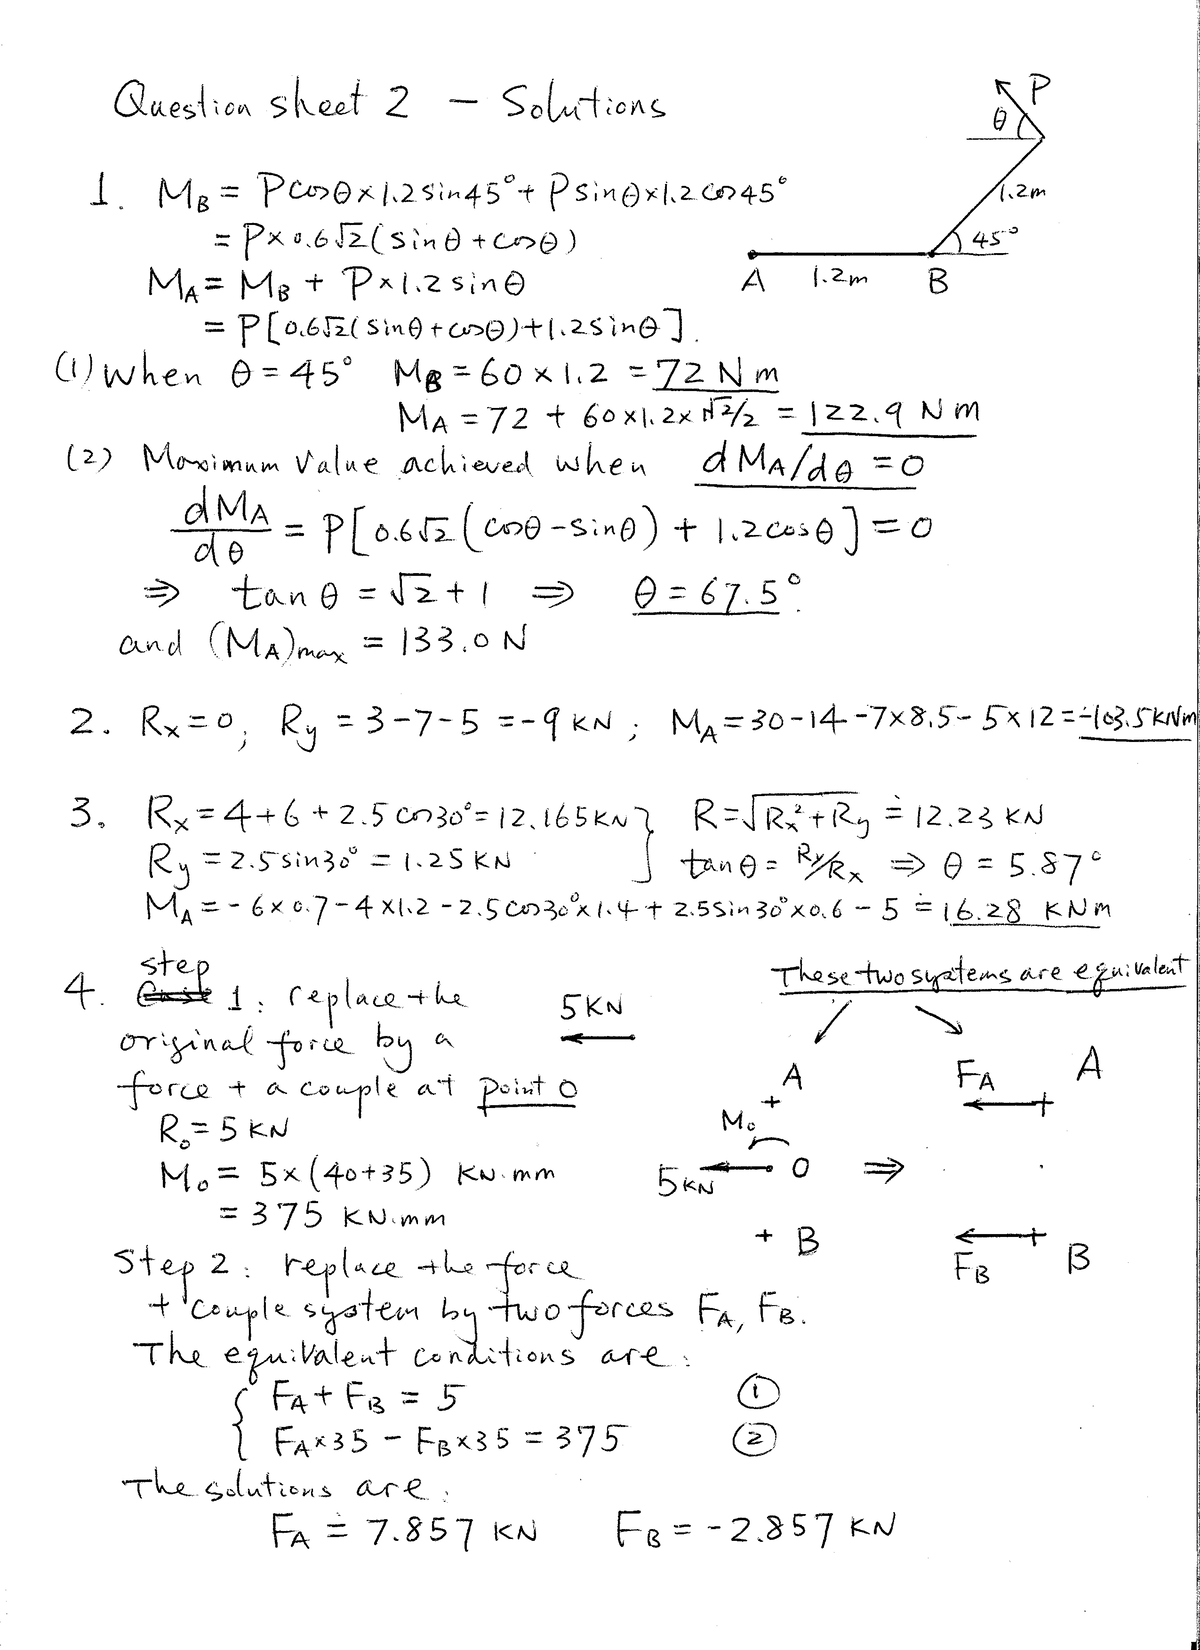 Question sheet 2 - Solutions
P
θ
1.2m
45°
A 1.2m B
1. M_B = Pcosθ×1.2sin45°+ Psinθ×1.2cos45°
= P×0.6√2(sinθ+cosθ)
M_A = M_B + P×1.2sinθ
= P[0.6√2(sinθ+cosθ)+1.2sinθ].
(1) When θ=45° M_B = 60×1.2 = 72 Nm
M_A = 72 + 60×1.2×√2/2 = 122.9 Nm
(2) Maximum Value achieved when dM_A/dθ = 0
dM_A/dθ = P[0.6√2(cosθ-sinθ) + 1.2cosθ] = 0
⇒ tanθ = √2+1 ⇒ θ = 67.5°.
and (M_A)max = 133.0 N
2. Rx=0, Ry = 3-7-5 = -9 KN ; M_A = 30-14-7×8.5-5×12 = -103.5 KNm
3. Rx = 4+6+2.5cos30° = 12.165KN } R=√Rx²+Ry ≐ 12.23 KN
Ry = 2.5sin30° = 1.25 KN tanθ = Ry/Rx ⇒ θ = 5.87°
M_A = -6×0.7-4×1.2-2.5cos30°×1.4+2.5sin30°×0.6-5 ≐ 16.28 KNm
step
4. Case 1: replace the
original force by a
force + a couple at point O
R₀ = 5 KN
M₀ = 5×(40+35) KN.mm
= 375 KN.mm
5KN
These two systems are equivalent
A
+
M₀
5KN
O ⇒
+ B
F_A A
+
+
F_B B
Step 2: replace the force
+ couple system by two forces F_A, F_B.
The equivalent conditions are:
{ F_A + F_B = 5 ①
F_A×35 - F_B×35 = 375 ②
The solutions are:
F_A ≐ 7.857 KN F_B = -2.857 KN